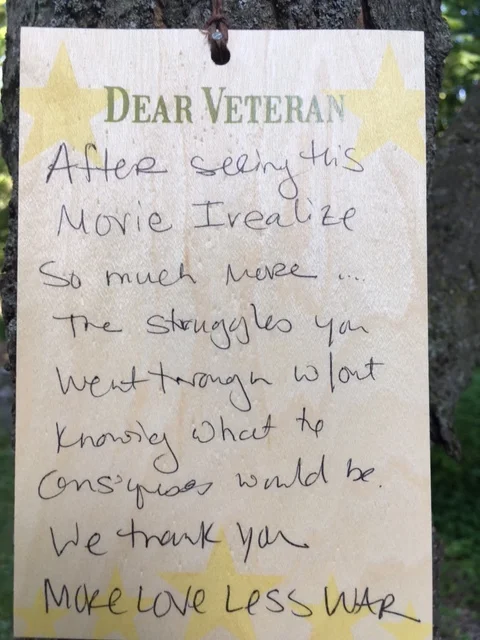 DEAR VETERAN
After seeing this
Movie I realize
So much more ...
The struggles you
went through w/out
knowing what the
would be.
We thank you
MORE LOVE LESS WAR